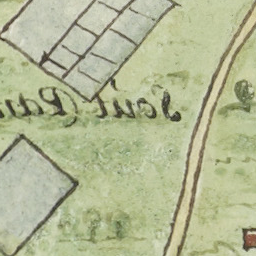 Soút Pan